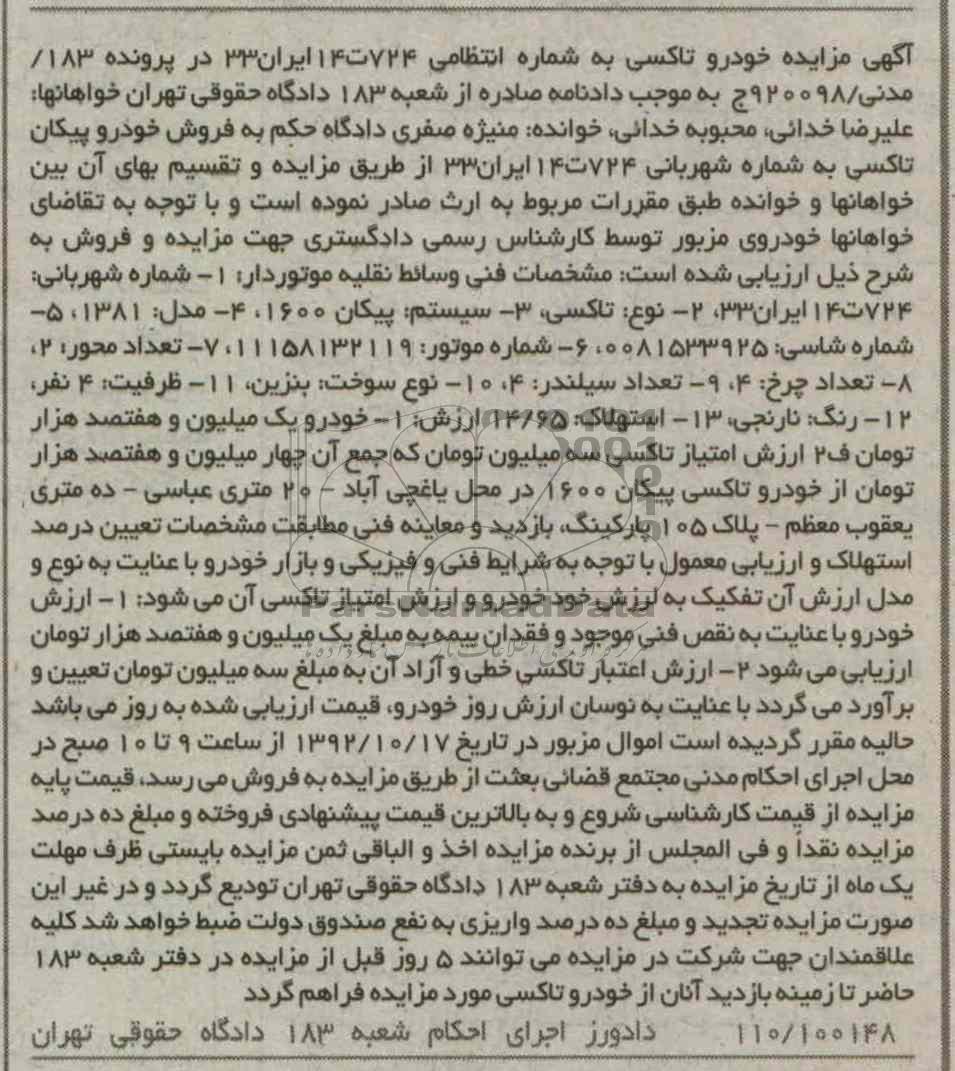 آگهی مزایده خودرو تاکسی به شماره انتظامی ۷۲۴ت۱۴ایران۳۳ در پرونده ۱۸۳/
مدنی/۹۲۰۰۹۸ج به موجب دادنامه صادره از شعبه ۱۸۳ دادگاه حقوقی تهران خواهانها:
علیرضا خدائی، محبوبه خدائی، خوانده: منیژه صفری دادگاه حکم به فروش خودرو پیکان
تاکسی به شماره شهربانی ۷۲۴ت۱۴ایران۳۳ از طریق مزایده و تقسیم بهای آن بین
خواهانها و خوانده طبق مقررات مربوط به ارث صادر نموده است و با توجه به تقاضای
خواهانها خودروی مزبور توسط کارشناس رسمی دادگستری جهت مزایده و فروش به
شرح ذیل ارزیابی شده است: مشخصات فنی وسائط نقلیه موتوردار: ۱- شماره شهربانی:
۷۲۴ت۱۴ایران۳۳، ۲- نوع: تاکسی، ۳- سیستم: پیکان ۱۶۰۰، ۴- مدل: ۱۳۸۱، ۵-
شماره شاسی: ۰۰۸۱۵۳۳۹۲۵، ۶- شماره موتور: ۱۱۱۵۸۱۳۲۱۱۹، ۷- تعداد محور: ۲،
۸- تعداد چرخ: ۴، ۹- تعداد سیلندر: ۴، ۱۰- نوع سوخت: بنزین، ۱۱- ظرفیت: ۴ نفر،
۱۲- رنگ: نارنجی، ۱۳- استهلاک: ۱۴/۶۵ ارزش: ۱- خودرو یک میلیون و هفتصد هزار
تومان ف۲ ارزش امتیاز تاکسی سه میلیون تومان که جمع آن چهار میلیون و هفتصد هزار
تومان از خودرو تاکسی پیکان ۱۶۰۰ در محل یاغچی آباد - ۲۰ متری عباسی - ده متری
یعقوب معظم - پلاک ۱۰۵ پارکینگ، بازدید و معاینه فنی مطابقت مشخصات تعیین درصد
استهلاک و ارزیابی معمول با توجه به شرایط فنی و فیزیکی و بازار خودرو با عنایت به نوع و
مدل ارزش آن تفکیک به ارزش خود خودرو و ارزش امتیاز تاکسی آن می شود: ۱- ارزش
خودرو با عنایت به نقص فنی موجود و فقدان بیمه به مبلغ یک میلیون و هفتصد هزار تومان
ارزیابی می شود ۲- ارزش اعتبار تاکسی خطی و آزاد آن به مبلغ سه میلیون تومان تعیین و
برآورد می گردد با عنایت به نوسان ارزش روز خودرو، قیمت ارزیابی شده به روز می باشد
حالیه مقرر گردیده است اموال مزبور در تاریخ ۱۳۹۲/۱۰/۱۷ از ساعت ۹ تا ۱۰ صبح در
محل اجرای احکام مدنی مجتمع قضائی بعثت از طریق مزایده به فروش می رسد، قیمت پایه
مزایده از قیمت کارشناسی شروع و به بالاترین قیمت پیشنهادی فروخته و مبلغ ده درصد
مزایده نقداً و فی المجلس از برنده مزایده اخذ و الباقی ثمن مزایده بایستی ظرف مهلت
یک ماه از تاریخ مزایده به دفتر شعبه ۱۸۳ دادگاه حقوقی تهران تودیع گردد و در غیر این
صورت مزایده تجدید و مبلغ ده درصد واریزی به نفع صندوق دولت ضبط خواهد شد کلیه
علاقمندان جهت شرکت در مزایده می توانند ۵ روز قبل از مزایده در دفتر شعبه ۱۸۳
حاضر تا زمینه بازدید آنان از خودرو تاکسی مورد مزایده فراهم گردد
۱۱۰/۱۰۰۱۴۸ دادورز اجرای احکام شعبه ۱۸۳ دادگاه حقوقی تهران
ParsNamadData